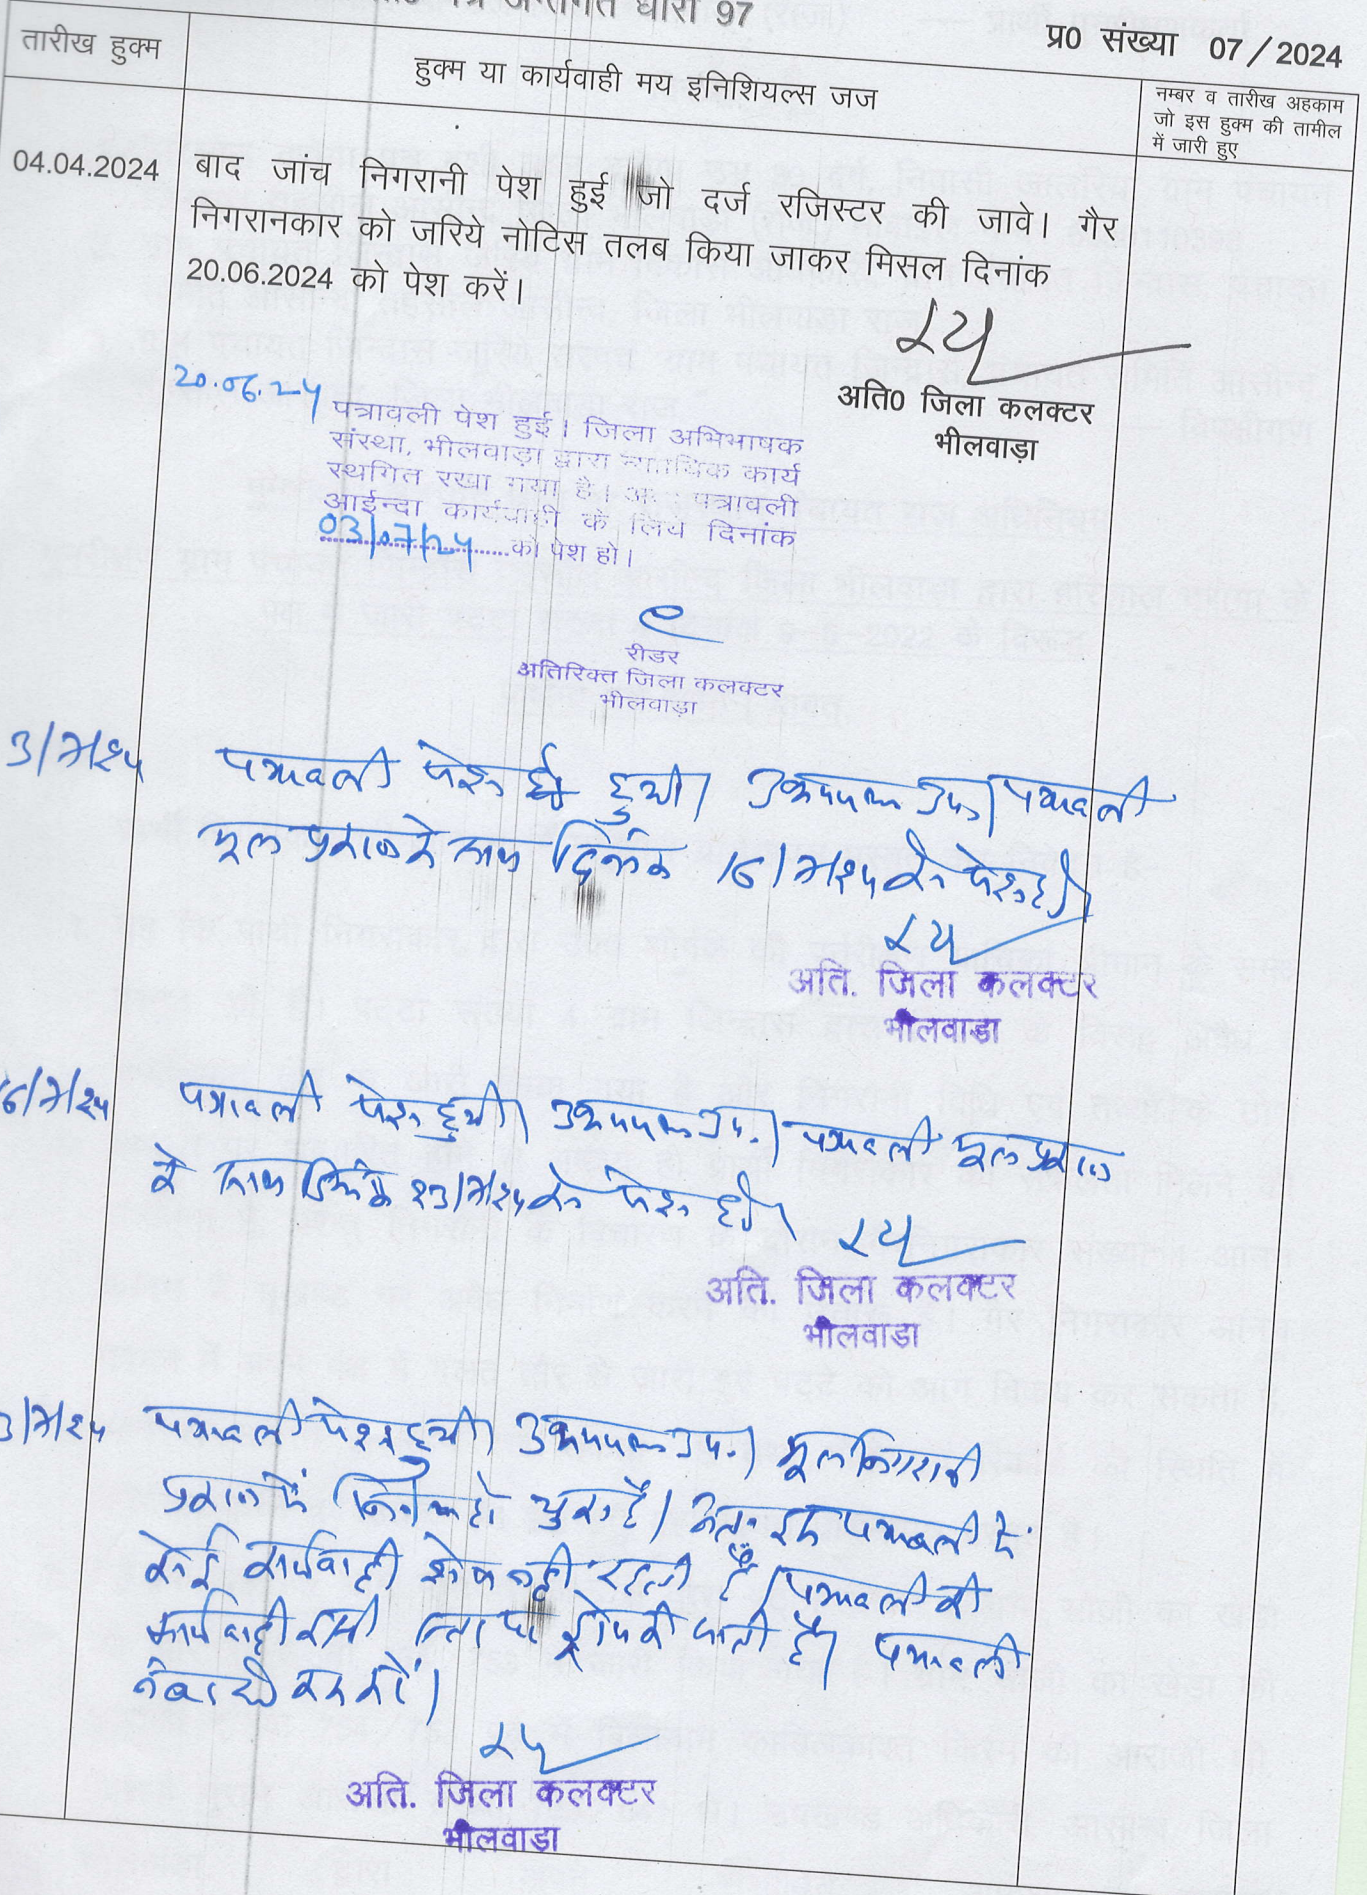 अन्तर्गत धारा 97
प्र0 संख्या 07/2024
तारीख हुक्म
हुक्म या कार्यवाही मय इनिशियल्स जज
नम्बर व तारीख अहकाम
जो इस हुक्म की तामील
में जारी हुए
04.04.2024
बाद जांच निगरानी पेश हुई जो दर्ज रजिस्टर की जावे। गैर
निगरानकार को जरिये नोटिस तलब किया जाकर मिसल दिनांक
20.06.2024 को पेश करें।
अति0 जिला कलक्टर
भीलवाड़ा
20.06.24
पत्रावली पेश हुई। जिला अभिभाषक
संस्था, भीलवाड़ा द्वारा न्यायिक कार्य
स्थगित रखा गया है। अतः पत्रावली
आईन्दा कार्यवाही के लिये दिनांक
03/07/24 को पेश हो।
रीडर
अतिरिक्त जिला कलक्टर
भीलवाड़ा
3/7/24
पत्रावली पेश हुयी। उभयपक्ष उप.। पत्रावली
मूल प्रकरण के साथ दिनांक 16/7/24 को पेश हो।
अति. जिला कलक्टर
भीलवाडा
16/7/24
पत्रावली पेश हुयी। उभयपक्ष उप.। पत्रावली मूल प्रकरण
के साथ दिनांक 23/7/24 को पेश हो।
अति. जिला कलक्टर
भीलवाडा
3/7/24
पत्रावली पेश हुयी। उभयपक्ष उप.। मूल निगरानी
प्रकरण में निर्णय हो चुका है। अतः इस पत्रावली में
कोई कार्यवाही शेष नही रहती है। पत्रावली की
कार्यवाही इसी स्तर पर ड्रोप की जाती है। पत्रावली
अति. जिला कलक्टर
भीलवाडा